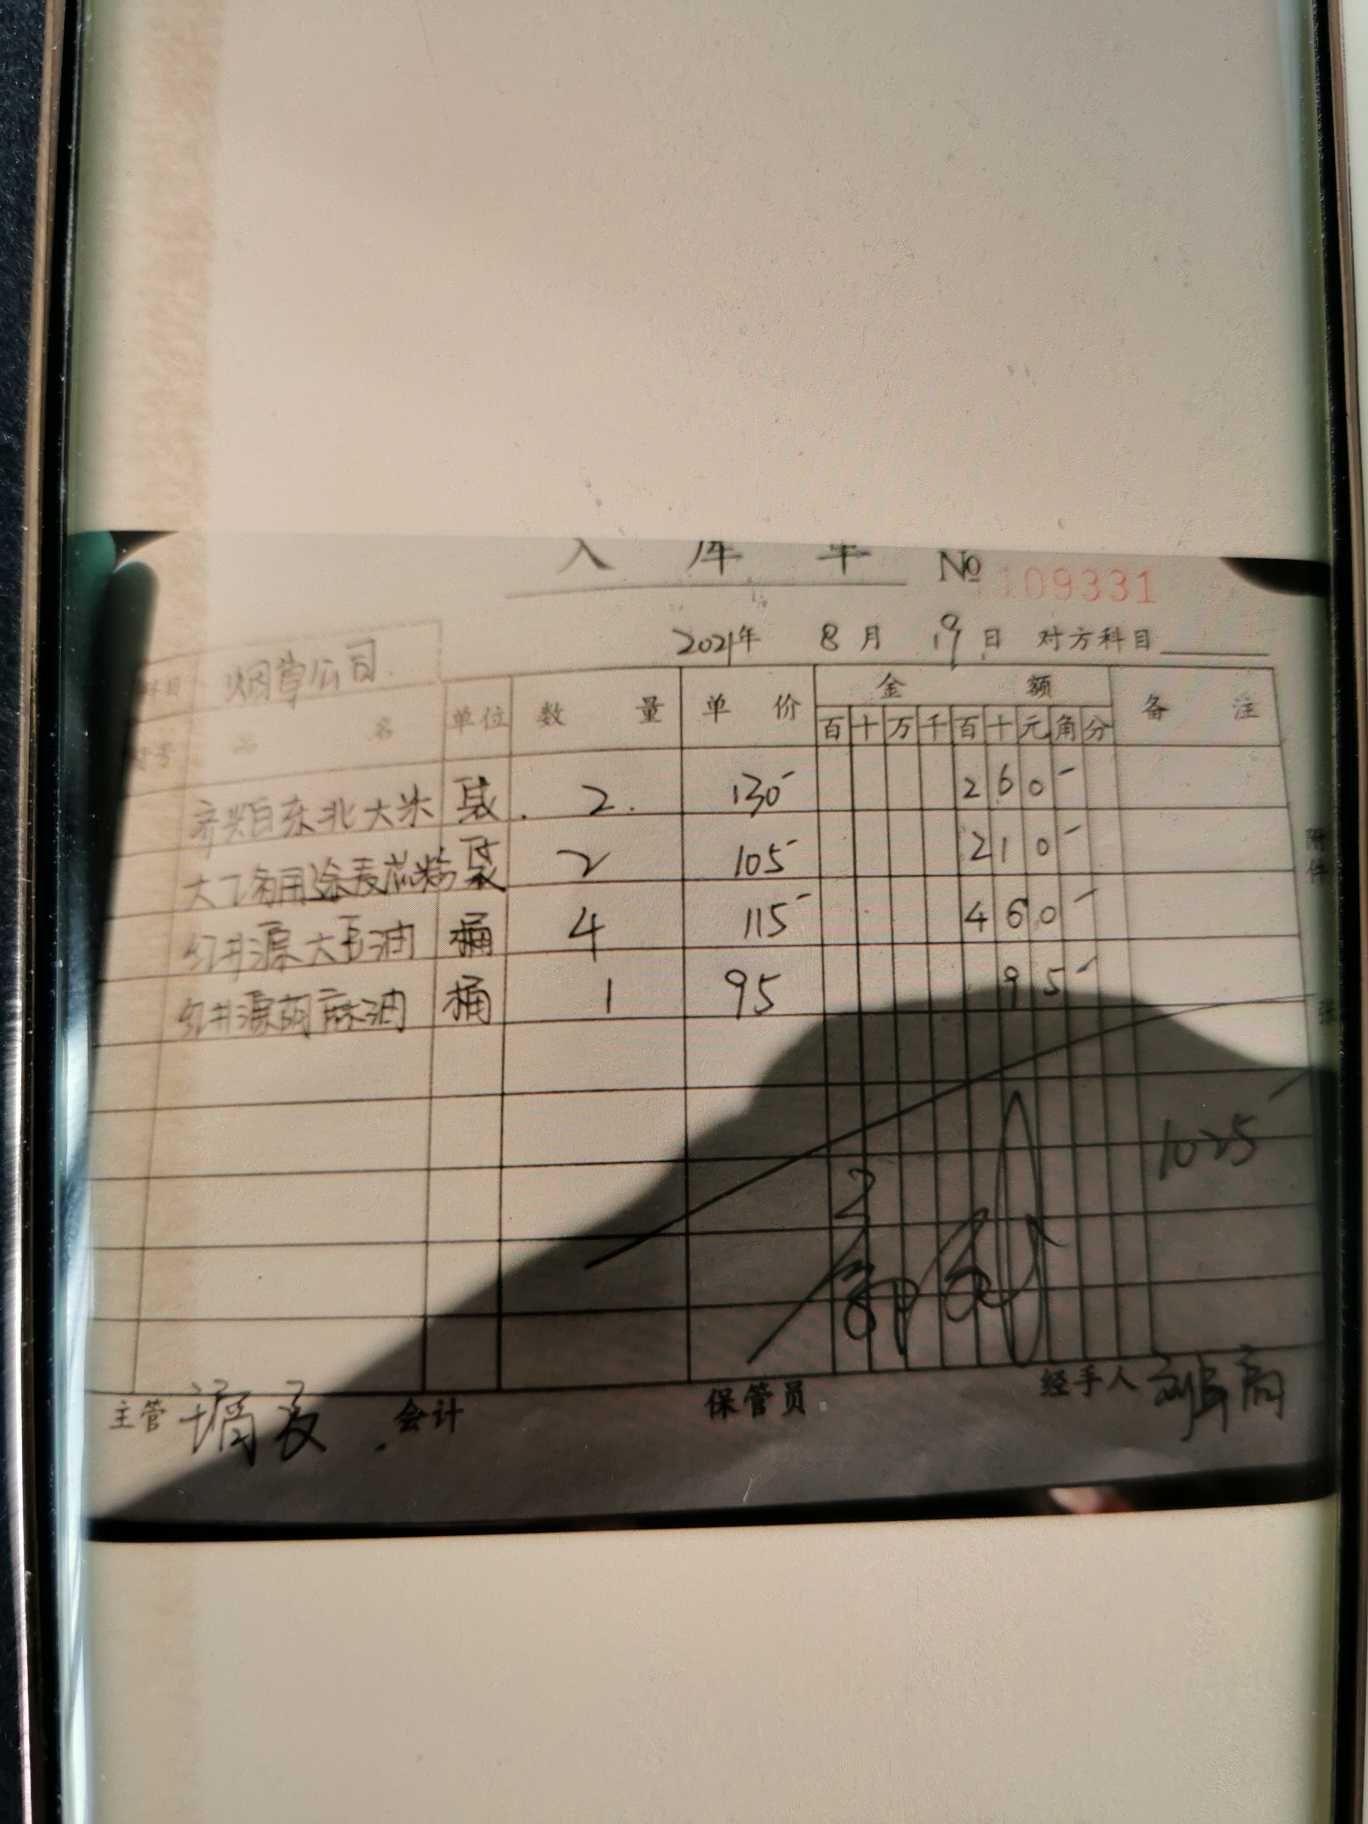 入 库 单 № 109331
2021年 8月 19日 对方科目
科目 烟草公司
品 名 单位 数 量 单 价 金 额 备 注
百 十 万 千 百 十 元 角 分
东北大米 袋 2 130 2 6 0
袋 2 105 2 1 0
红井源大豆油 桶 4 115 4 6 0
红井源胡麻油 桶 1 95 9 5
附件
张
1025
主管 会计 保管员 经手人